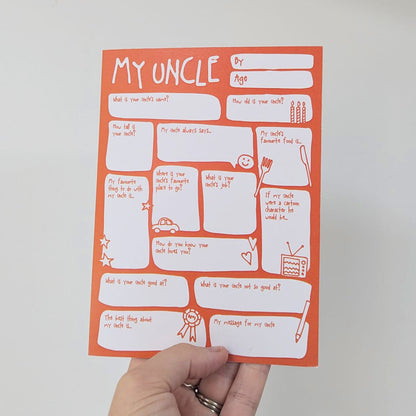 MY UNCLE
By
Age
What is your uncle's name?
How old is your uncle?
How tall is
your uncle?
My uncle always says...
My uncle's
favourite food is...
My favourite
thing to do with
my uncle is...
Where is your
uncle's favourite
place to go?
What is your
uncle's job?
If my uncle
were a cartoon
character he
would be...
How do you know your
uncle loves you?
What is your uncle good at?
What is your uncle not so good at?
The best thing about
my uncle is...
My message for my uncle